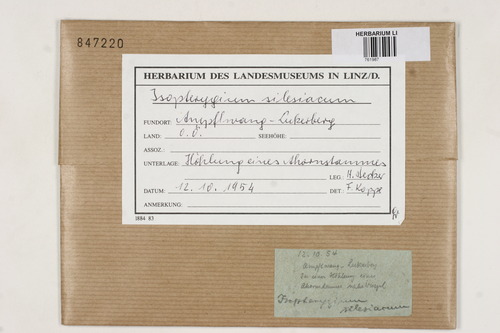 847220
HERBARIUM LI
HERBARIUM DES LANDESMUSEUMS IN LINZ/D.
Isopterygium silesiacum
FUNDORT: Ampflwang - Lukerberg
LAND: O.Ö. SEEHÖHE:
ASSOZ.:
UNTERLAGE: Höhlung eines Ahornstammes
LEG.: H.
DATUM: 12.10.1954 DET.: F. Koppe
ANMERKUNG:
1884 83
12.10.54
Ampflwang - Lukerberg
In einer Höhlung eines
Isopterygium
silesiacum